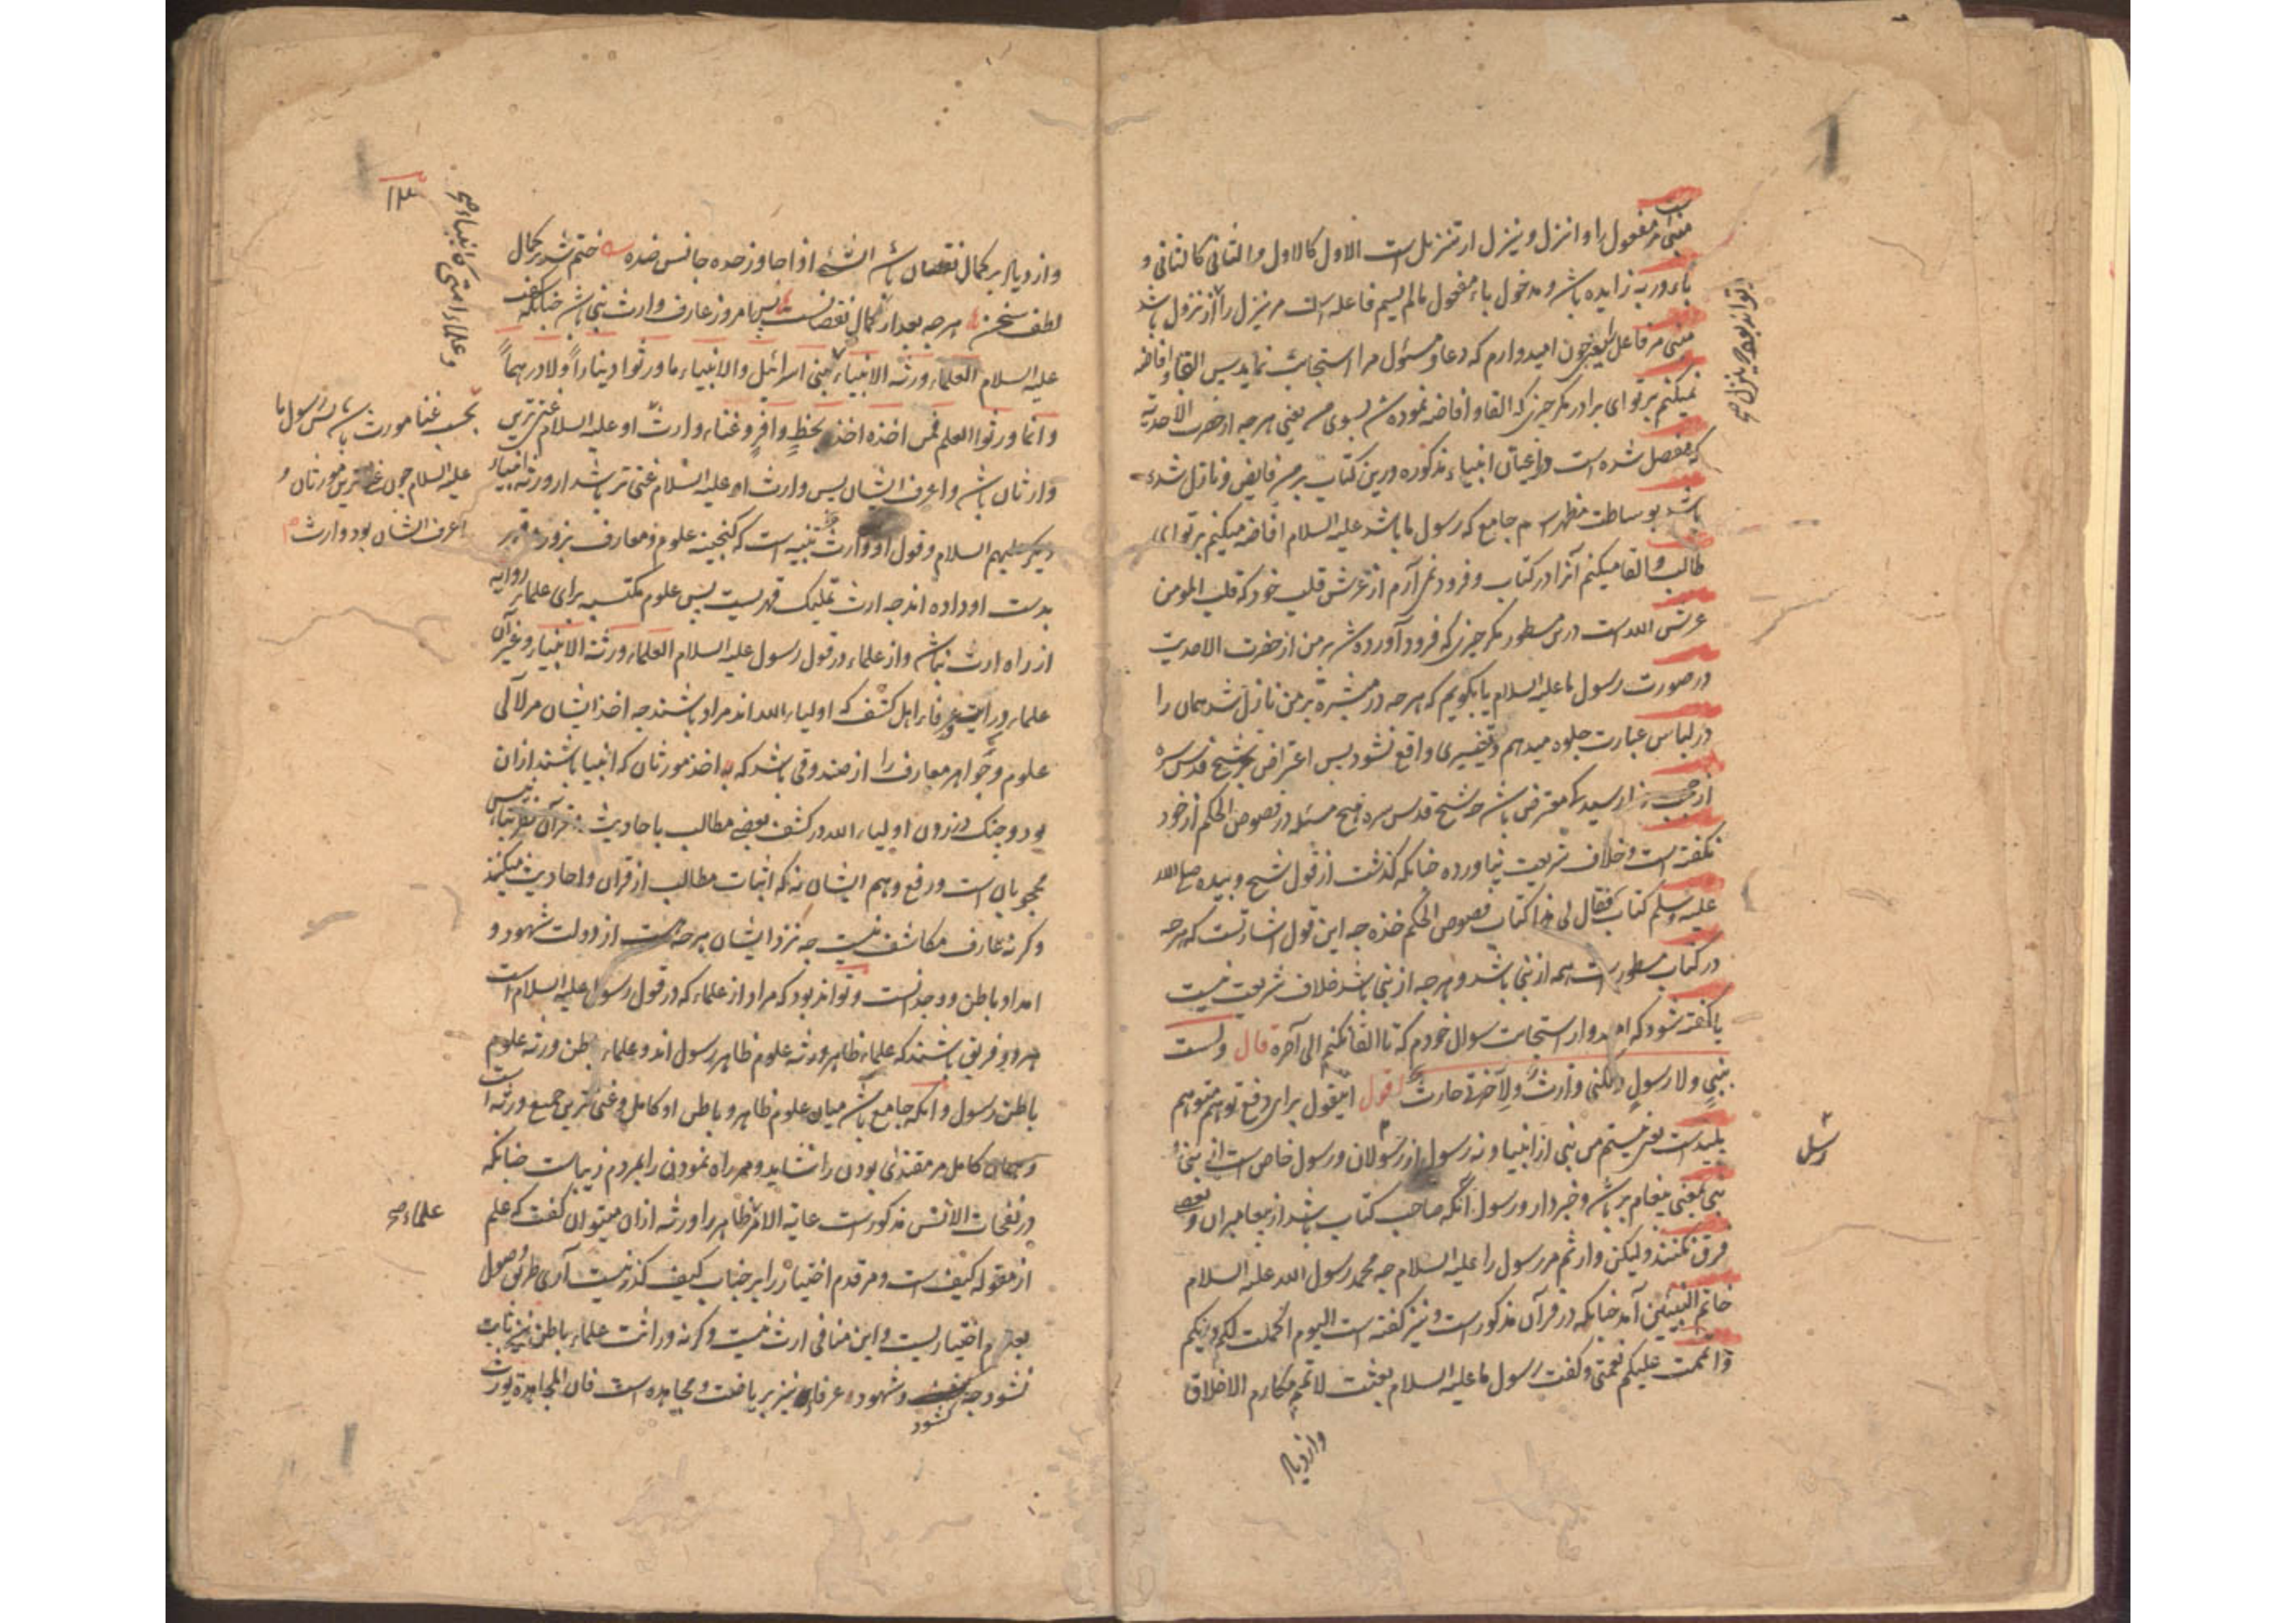 مبنی مر مفعول را و انزل و ینزل از تنزیل است الاول کالاول و الثانی کالثانی و
باء در به زایده باشد و مدخول باء مفعول مالم یسم فاعله است مر ینزل را از نزول باشد
مبنی مر فاعل را یعنی چون امیدوارم که دعا و مسئول مرا استجابت نماید پس القا و افاضه
نمیکنم بر تو ای برادر مکر چیزی که القا و افاضه نموده شد بسوی من یعنی هر چه از حضرت الاحدیة
که مفصل شده است در اعیان انبیاء مذکوره درین کتاب بر من فایض و نازل شده
باشد بوساطت مظهر اسم جامع که رسول ما باشد علیه السلام افاضه میکنم بر تو ای
طالب و القا میکنم آنرا در کتاب و فرود نمی آرم از عرش قلب خود که قلب المومن
عرش الله است درین مسطور مکر چیزی که فرود آورده شد بر من از حضرت الاحدیت
در صورت رسول ما علیه السلام یا بگویم که هر چه در مبشرة بر من نازل شد همان را
در لباس عبارت جلوه میدهم و تغییری واقع نشود پس اعتراض بر شیخ قدس سره
از رسید که معترض باشد چه شیخ قدس سره هیچ مسئله در فصوص الحکم از خود
نکفته است و خلاف شریعت نیاورده چنانکه گذشت از قول شیخ و بیده صلی الله
علیه وسلم کتاب فقال لی هذا کتاب فصوص الحکم خذه چه این قول اشارتست که هر چه
در کتاب مسطور است همه از نبی باشد و هر چه از نبی باشد خلاف شریعت نیست
یا کفته شود که امیدوار استجابت سوال خودم که تا القا نکنم الی آخره قال و لست
بنبی ولا رسول ولکنی وارث ولآخرتی حارث اقول اینقول برای دفع توهم متوهم
بلید است یعنی نیستم من نبی از انبیا و نه رسول از رسولان و رسول خاص است از نبی
نبی بمعنی پیغام بر باشد و خبردار و رسول آنکه صاحب کتاب باشد از پیغامبران و بعضی
فرق نکنند و لیکن وارثم مر رسول را علیه السلام چه محمد رسول الله علیه السلام
خاتم النبیین آمد چنانکه در قرآن مذکور است و نیز کفته است الیوم اکملت لکم دینکم
و اتممت علیکم نعمتی و کفت رسول ما علیه السلام بعثت لاتمم مکارم الاخلاق
وازدیاد
تواند بود که ینزل صح
رسل
۱۳
وازدیاد بر کمال نقصان باشد الشئ اذا جاوز حده جانس ضده ختم شد بر کمال
لطف سخن هر چه بعد از کمال نقصانست پس امروز عارف وارث نبی باشد چنانکه کفت
علیه السلام العلماء ورثه الانبیاء بنی اسرائیل والانبیاء ما ورثوا دیناراً ولا درهماً
وانما ورثوا العلم فمن اخذه اخذ بحظٍ وافرٍ و غناء وارث او علیه السلام غنی ترین
وارثان باشد و اعرف ایشان پس وارث او علیه السلام غنی تر باشد از ورثه انبیاء
دیکر علیهم السلام و قول او وارث تنبیه است که کنجینه علوم و معارف بزور قهر
بدست او داده اند چه ارث تملیک قهریست پس علوم مکتسبه برای علماء روایه
از راه ارث نباشد و از علماء در قول رسول علیه السلام العلماء ورثة الانبیاء و غیر آن
علماء درایت و عرفاء اهل کشف که اولیاء الله اند مراد باشند چه اخذ ایشان مر لآلی
علوم و جواهر معارف را از صندوقی باشد که اخذ مورثان که انبیا باشند ازان
بود و چنک در زدن اولیاء الله در کشف بعضی مطالب باحادیث و قرآن
محجوبان است و رفع وهم ایشان نه که اثبات مطالب از قرآن و احادیث میکنند
وکرنه عارف مکاشف نیست چه نزد ایشان هر چه هست از دولت شهود و
امداد باطن و وجدانست و تواند بود که مراد از علماء که در قول رسول علیه السلام است
هر دو فریق باشند که علماء ظاهر ورثه علوم ظاهر رسول اند و علماء باطن ورثه علوم
باطن رسول و آنکه جامع باشد میان علوم ظاهر و باطن او کامل و غنی ترین جمیع ورثه است
و همان کامل مر مقتدای بودن را شاید و مر راه نمودن را بمردم زیباست چنانکه
در نفحات الانس مذکور است غایة الامر ظاهر را ورثه ازان میتوان کفت که علم
از مقوله کیف است و مر قدم اختیار را بر جناب کیف کذر نیست آری طریق وصول
بعلم اختیاریست و این منافی ارث نیست وکرنه وراثت علماء باطن نیز ثابت
نشود چه کشود و شهود عرفاء نیز بریاضت و مجاهده است فان المجاهدة یورث
و علماء امتی کانبیاء صح
بحسب غناء مورث باشد پس رسول ما
علیه السلام چون غنی ترین مورثان و
اعرف ایشان بود وارث
علماء صح